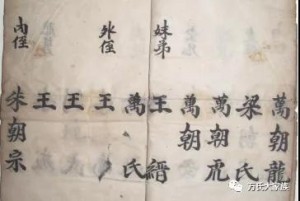 萬朝龍
梁氏
萬朝㐆
萬朝
妹弟
王縉
萬氏
外侄
王
王
王
内侄
朱朝宗
万氏大家族